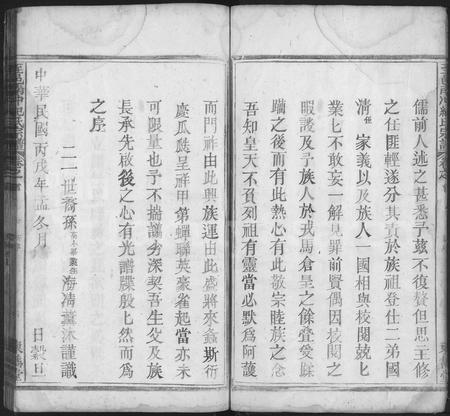 儒前人述之甚悉予茲不復贅但思主修
之任匪輕遂分其責於族祖登仕二弟國
清 家義以及族人一國相與校閱兢兢
業業不敢妄一解見罪前賢偶因校閱之
暇謏及予族人於戎馬倉皇之餘疊受蹂
躪之後而有此熱心有此敬宗睦族之念
吾知皇天不負列祖有靈當必默為阿護
而門祚由此興族運由此盛將來螽斯衍
慶瓜瓞呈祥甲第蟬聯英豪雀起當亦未
可限量也予不揣譾劣深契吾生父及族
長承先啟後之心有光譜牒殷殷然而為
之序
中華民國丙戌年孟冬月 日穀旦
二一世裔孫 海清薰沐謹識